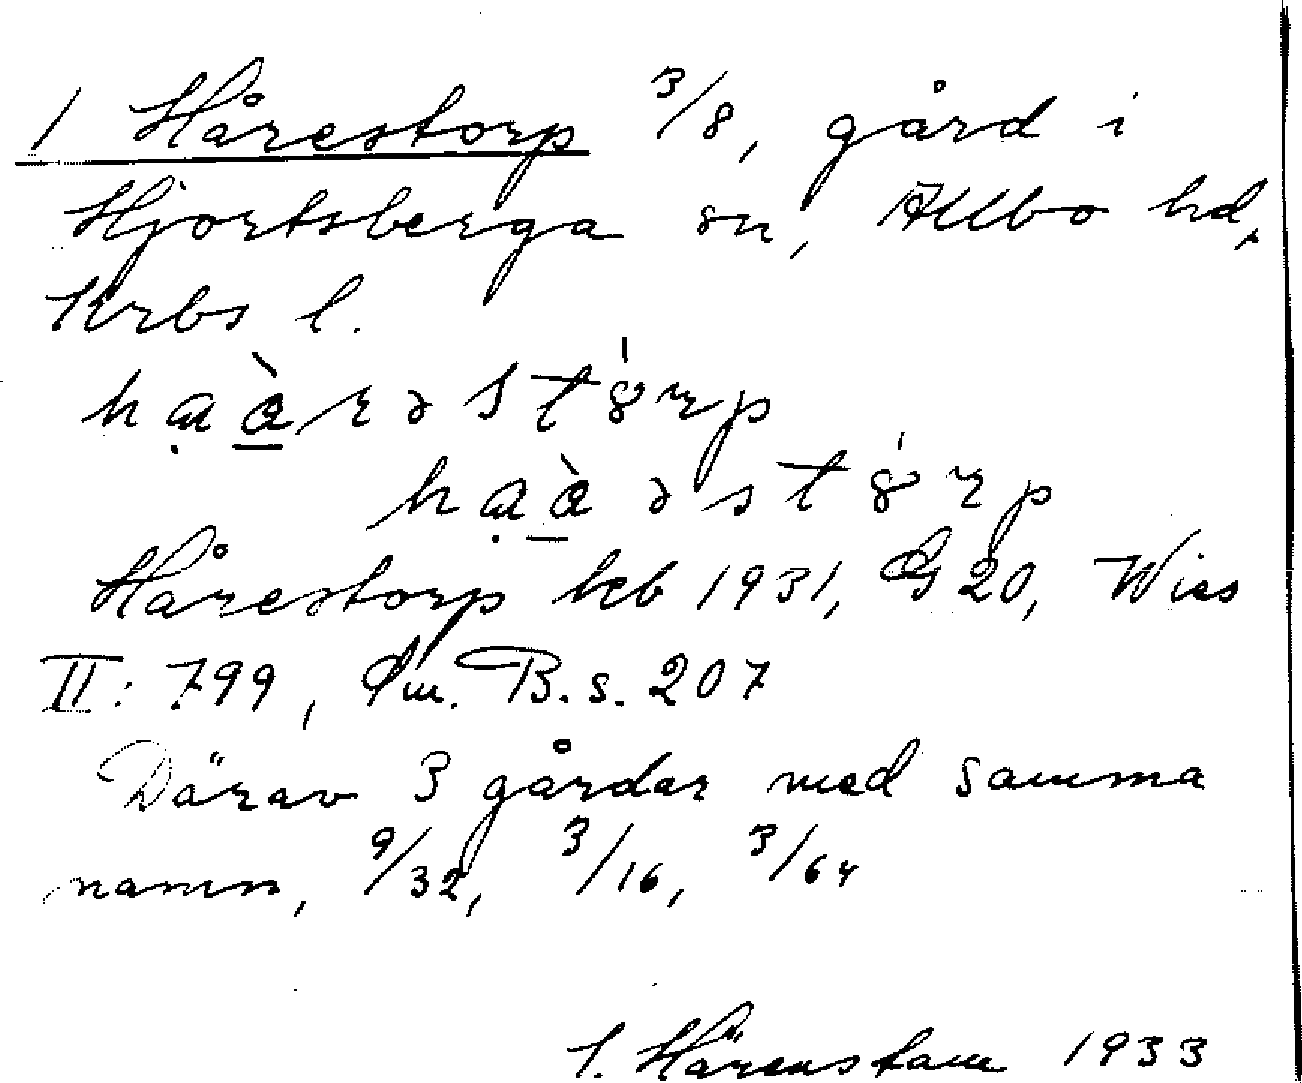 1 Hårestorp 3/8, gård i
Hjortsberga sn, Allbo hd,
Krbs l.
hạàrəstórp
hạàəstórp
Hårestorp keb 1931, G 20, Wies
II: 799, Sm. B. s. 207
Därav 3 gårdar med samma
namn, 9/32, 3/16, 3/64
Härenstam 1933